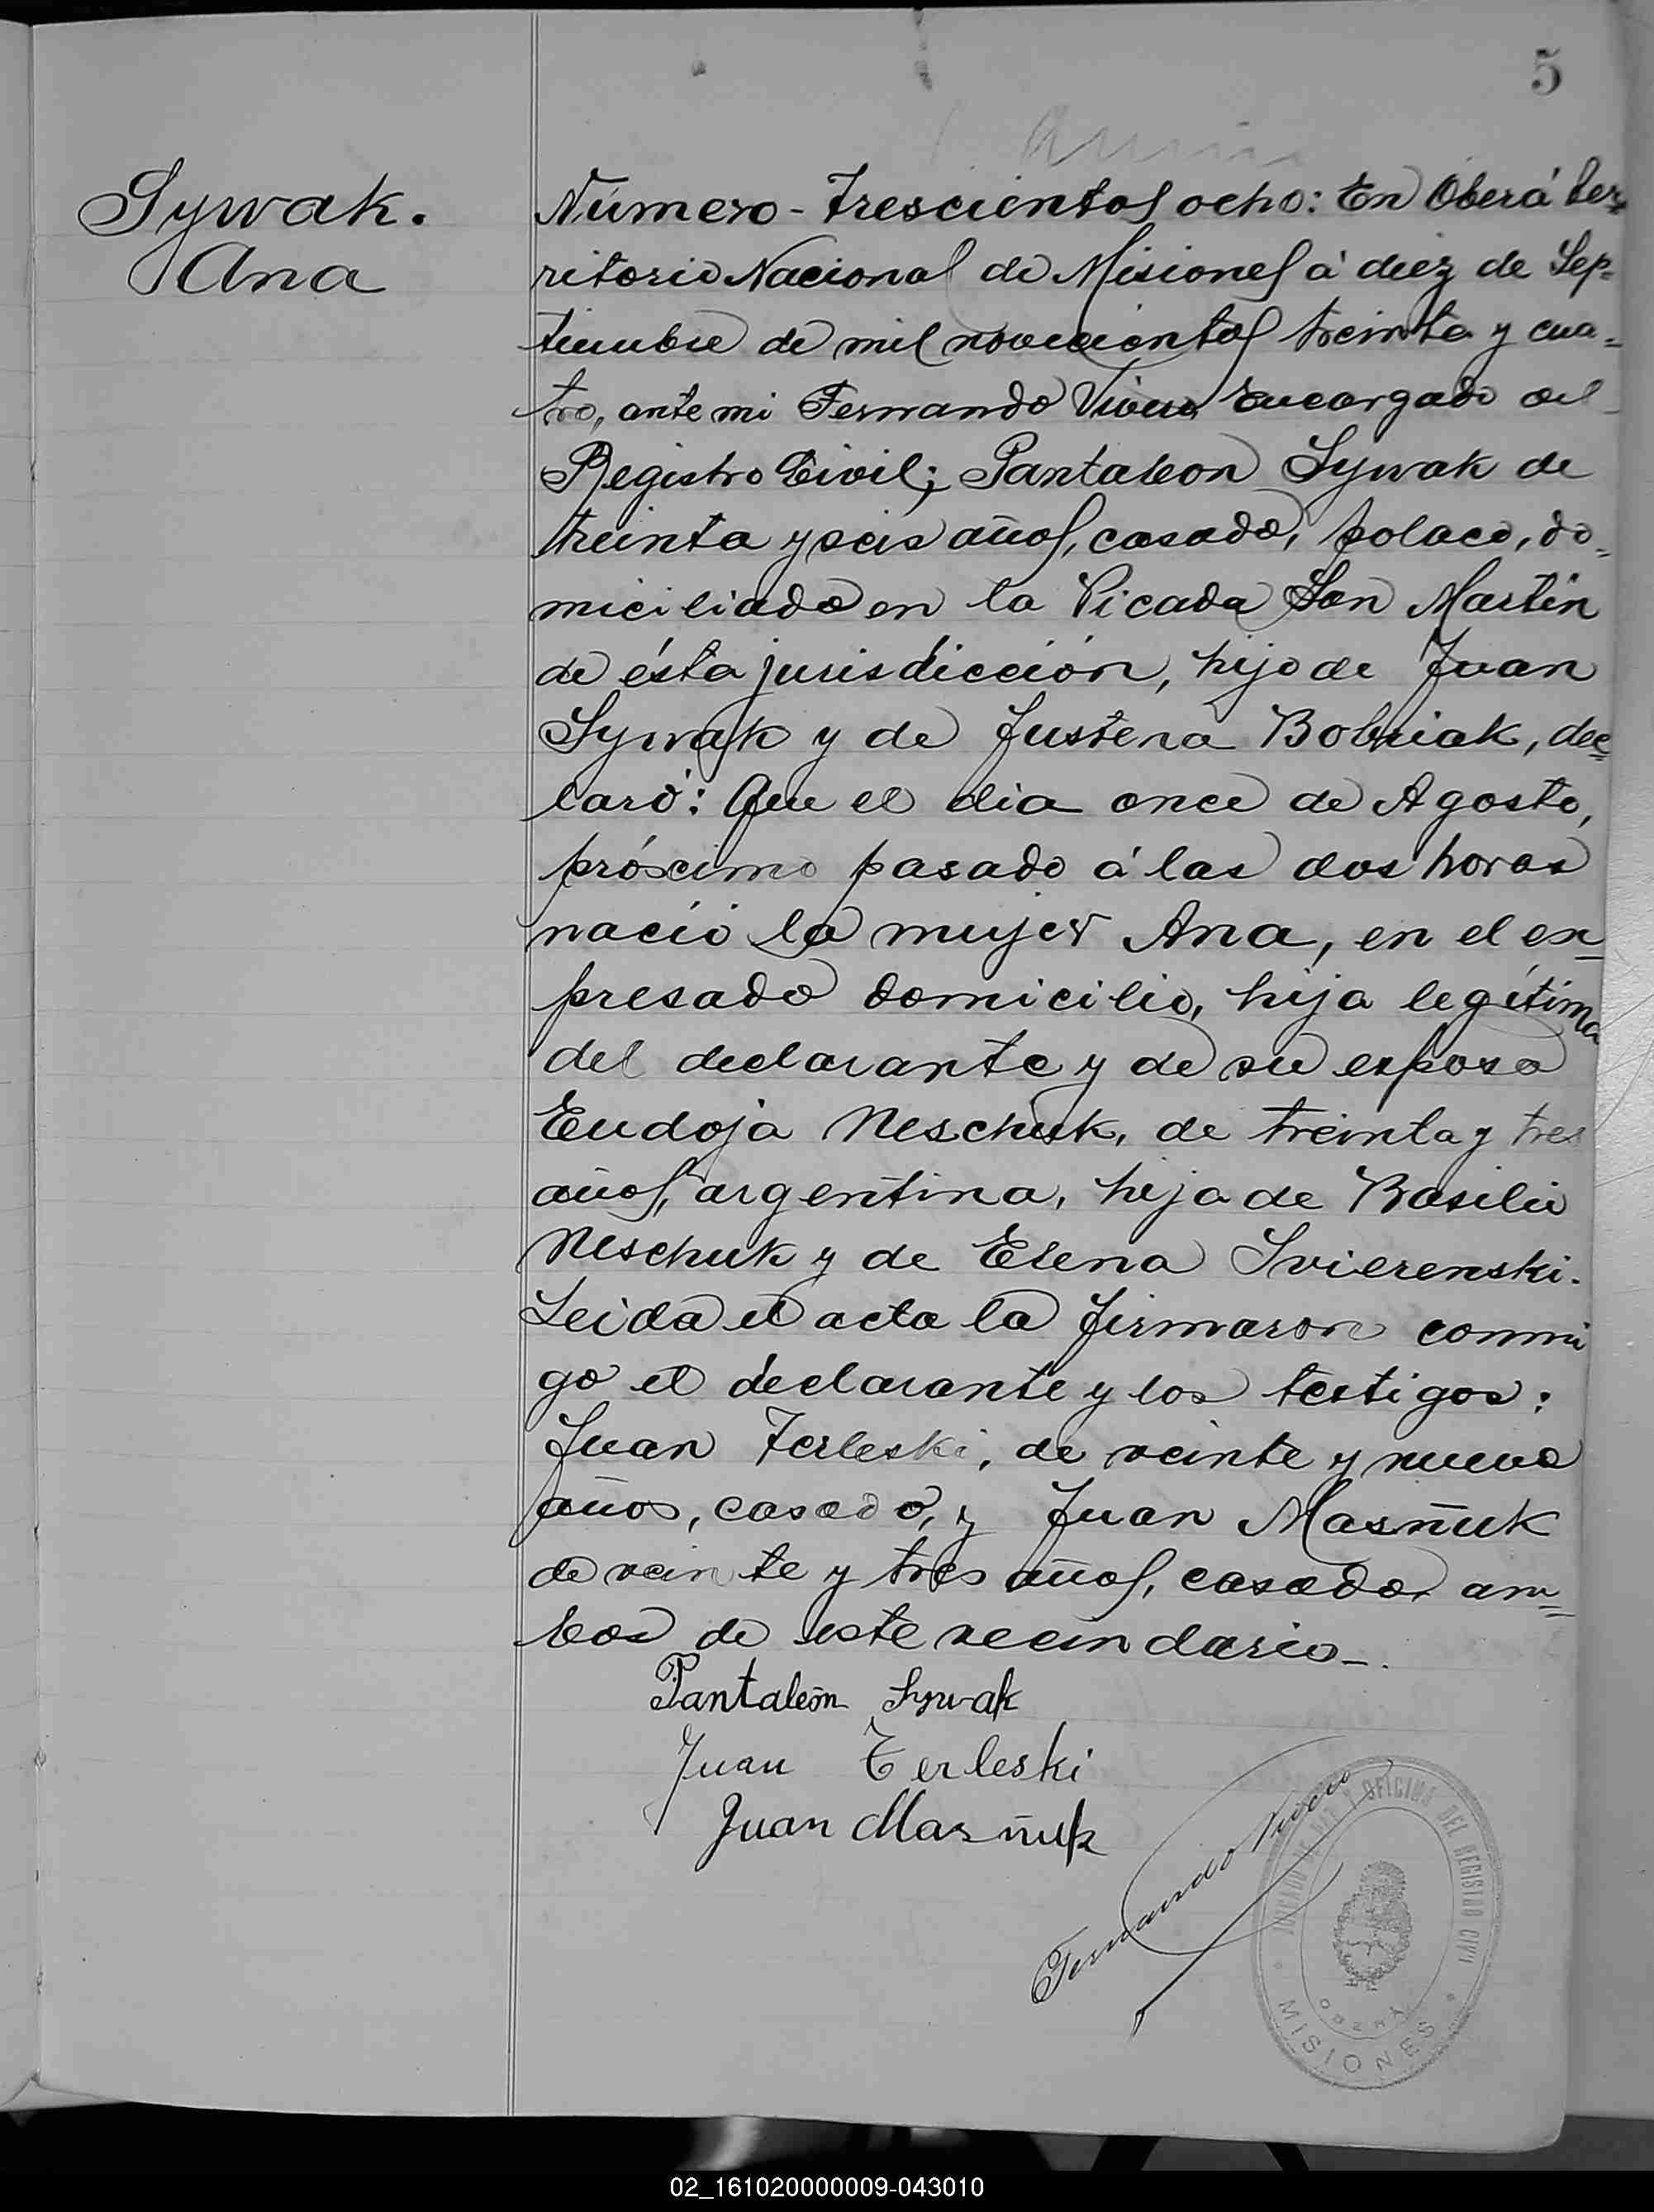 5
Sywak.
Ana
Número-Trescientos ocho: En Oberá ter=
ritorio Nacional de Misiones á diez de Sep=
tiembre de mil novecientos treinta y cua=
tro, ante mi Fernando Encargado del
Registro Civil; Pantaleon Sywak de
treinta y seis años, casado, polaco, do=
miciliado en la Picada San Martín
de ésta jurisdicción, hijo de Juan
Sywak y de Justena Bobriak, dec=
laró: Que el dia once de Agosto,
próximo pasado á las dos horas
nació la mujer Ana, en el ex=
presado domicilio, hija legítima
del declarante y de su esposa
Eudoja Neschuk, de treinta y tres
años, argentina, hija de Basilio
Neschuk y de Elena Svierenski.
Leida el acta la firmaron conmi
go el declarante y los testigos:
Juan Terleski, de veinte y nueve
años, casado, y Juan Masñuk
de veinte y tres años, casado, am=
bos de este vecindario-.
Pantaleón Sywak
Juan Terleski
Juan Masñuk
Fernando
JUZGADO DE PAZ Y OFICINA DEL REGISTRO CIVIL
OBERÁ
MISIONES
02_161020000009-043010